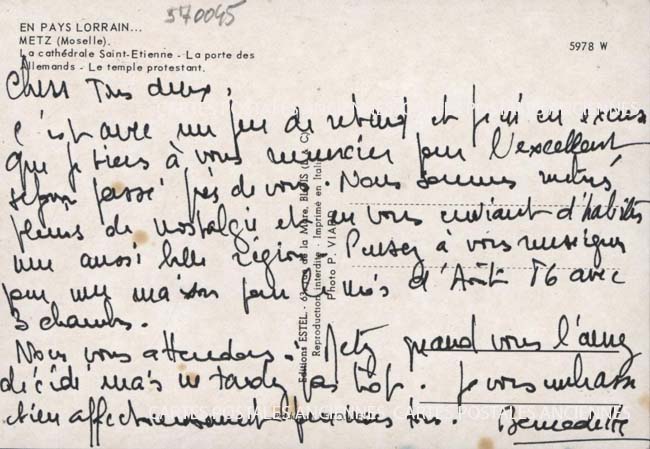 570045
EN PAYS LORRAIN...
METZ (Moselle).
La cathédrale Saint-Etienne - La porte des
Allemands - Le temple protestant.
5978 W
Chers Tous deux,
C'est avec un peu de retard et j'en excuse
que je tiens à vous remercier pour l'excellent
séjour passé près de vous. Nous sommes rentrés
pleins de nostalgie et en vous enviant d'habiter
une aussi belle région. Pensez à vous renseigner
pour une maison pour le mois d'Août 76 avec
3 chambres.
Nous vous attendons à Metz quand vous l'aurez
décidé mais ne tardez pas trop. Je vous embrasse
bien affectueusement pour nous tous. Bernadette
Editions ESTEL - 63, rue de la Mare, BLOIS (L.-&-C.)
Reproduction interdite - Imprimé en Italie
Photo P. VIARD
CARTES POSTALES ANCIENNES CARTES POSTALES ANCIENNES